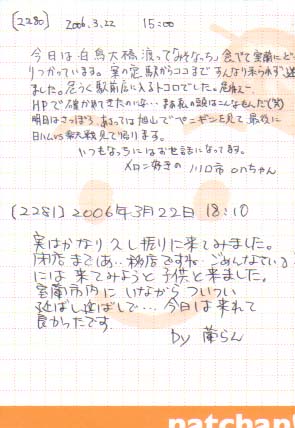 [2280] 2006.3.22 15:00
今日は白鳥大橋渡って「みそなっち」食べて室蘭にど
りつかっています。案の定駅からココまですんなり来られず迷
ました。危うく駅前店に入るトコロでした。
HPで確かめてきたのに… まあ私の頭はこんなもんだ(笑)
明日はさっぽろ、あさっては旭山でペンギンを見て、最後に
日ハムvs楽天戦見て帰ります。
いつもなっちにはお世話になってます。
メロン好きの 川口市 onちゃん
[2281] 2006年3月22日 18:10
実はかなり久し振りに来てみました。
閉店まぎわ…
には来てみようと子供と来ました。
室蘭市内にいながらついつい
延ばし延ばしで… 今日は来れて
良かったです。
by 蘭らん
patchan